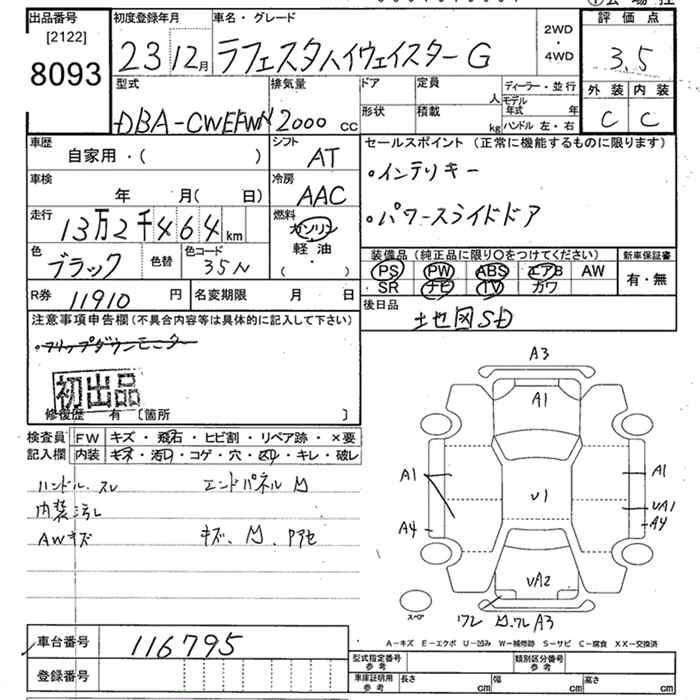 出品番号 初度登録年月 車名・グレード 評価点
[2122] 8093
23 12月 ラフェスタハイウェイスターG 2WD・4WD 3.5
型式 排気量 ドア 定員 人 ディーラー・並行 外装 内装
形状 積載 kg モデル年式 年 ハンドル 左・右
DBA-CWEFWN 2000 cc C C
車歴 シフト セールスポイント(正常に機能するものに限ります)
自家用・( ) AT
・インテリキー
車検 冷房
年 月( 日) AAC
・パワースライドドア
走行 燃料
13万2千464km ガソリン 軽油・( )
色 色替 色コード 装備品(純正品に限り○をつけてください) 新車保証書
ブラック 35N PS PW ABS エアB AW 有・無
SR ナビ TV カワ
R券 11910 円 名変期限 月 日 後日品
地図SD
注意事項申告欄(不具合内容等は具体的に記入して下さい)
・フリップダウンモニター
初出品
修復歴 有〔箇所 〕
A3
A1
検査員 FW キズ・飛石・ヒビ割・リペア跡・×要
記入欄 内装 キズ・汚れ・コゲ・穴・凹・キレ・破レ
ハンドル、スレ エンドパネルM
内装汚れ
AWキズ キズ、M、Pアセ
A1 U1 A1
UA1
A4 A4
UA2
スペア ワレ M.ワレ A3
A-キズ E-エクボ U-凹み W-補修跡 S-サビ C-腐食 XX-交換済
車台番号 116795
登録番号
型式指定番号 参考 類別区分番号 参考
車庫証明用 参考 長さ cm 幅 cm 高さ cm